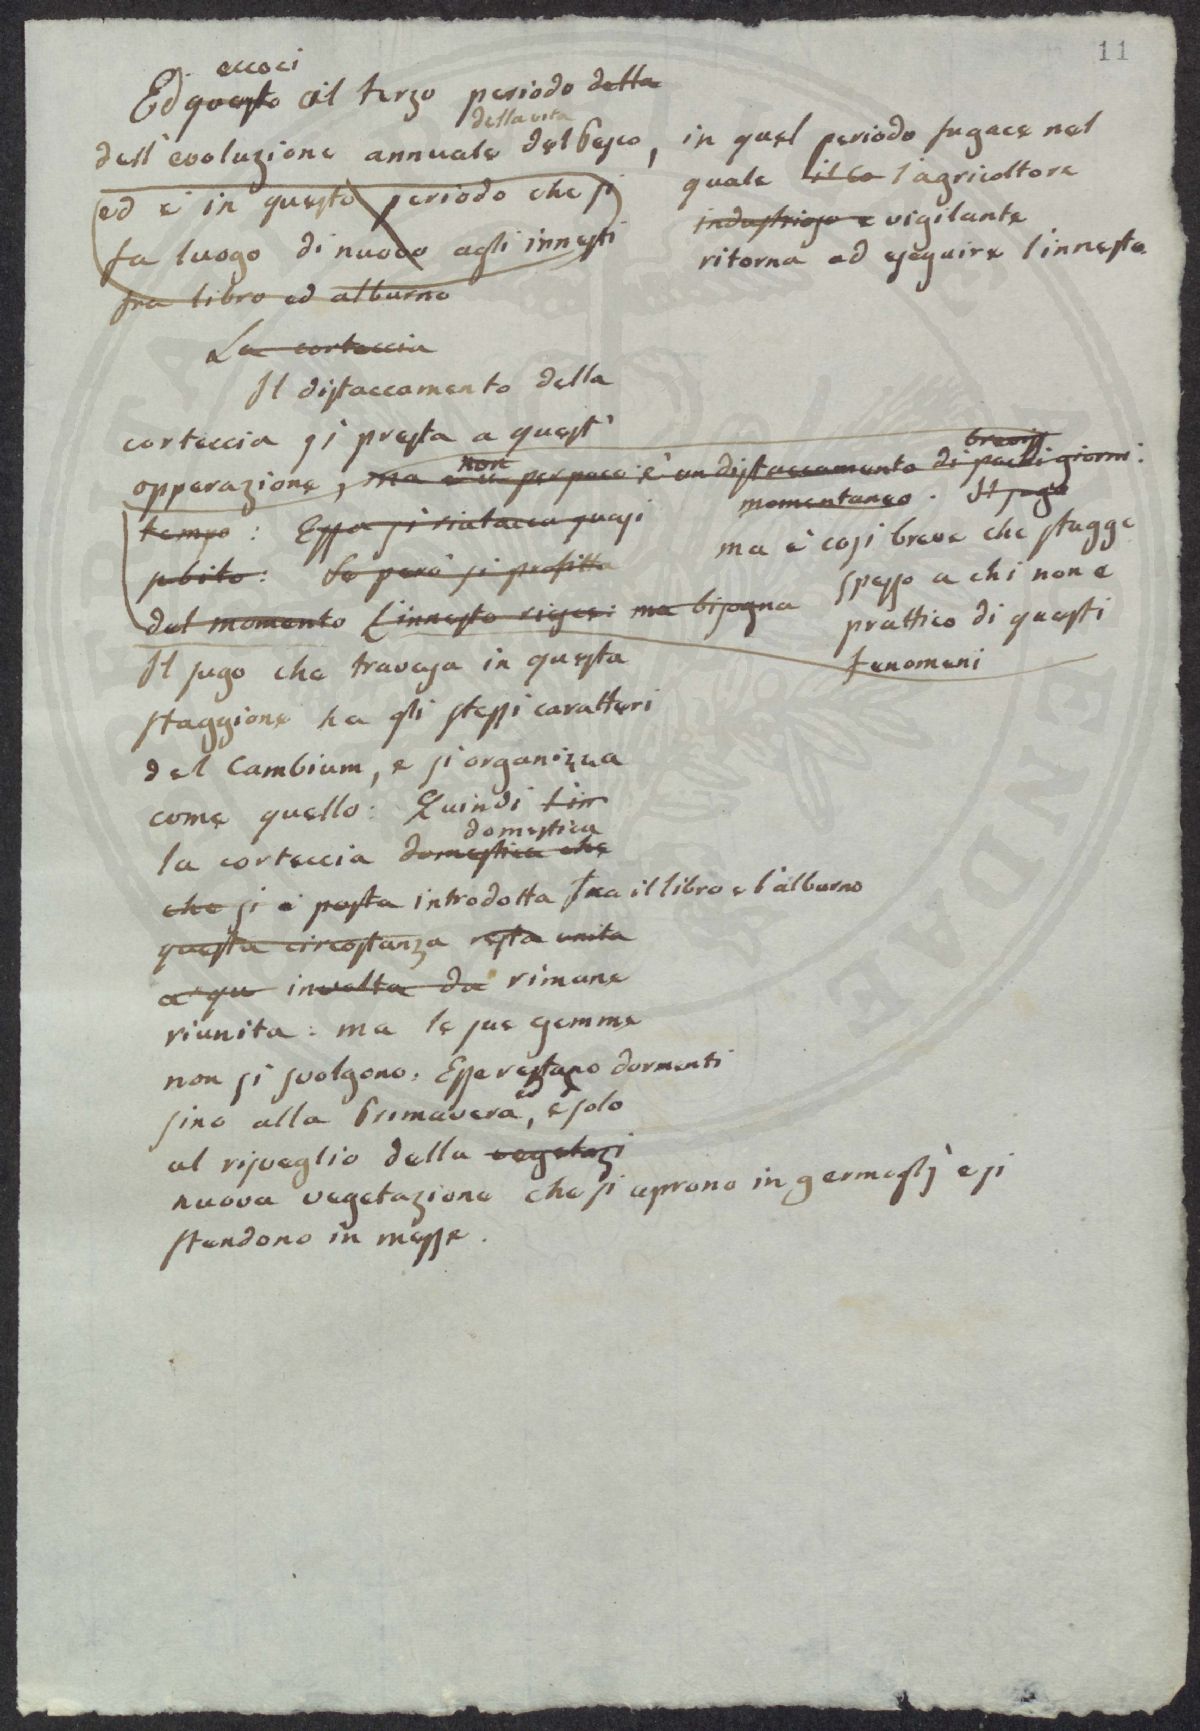 11
eccoci
Ed questo al terzo periodo della
della vita
dell'evoluzione annuale del Pesco, in quel periodo fugace nel
quale il Co l'agricoltore
ed è in questo periodo che si
industrioso e vigilante
fa luogo di nuovo agli innesti
ritorna ad eseguire l'innesto
fra libro ed alburno
La corteccia
Il distaccamento della
corteccia si presta a quest'
breviss
non
opperazione, ma è per poco: è un distaccamento di pochi giorni:
momentaneo. Il sugo
tempo: Essa si riatacca quasi
ma è così breve che sfugge
subito: Se però si profitta
spesso a chi non è
del momento l'innesto riesce: ma bisogna
prattico di questi
fenomeni
Il sugo che travasa in questa
staggione ha gli stessi caratteri
del Cambium, e si organizza
come quello: Quindi l'in
domestica
la corteccia domestica che
che si è posta introdotta fra il libro e l'alburno
questa circostanza resta unita
a qu involta da rimane
riunita: ma le sue gemme
non si svolgono. Esse restano dormenti
ed
sino alla Primavera, e solo
al risveglio della vegetazi
nuova vegetazione che si aprono in germoglj e si
stendono in messe.